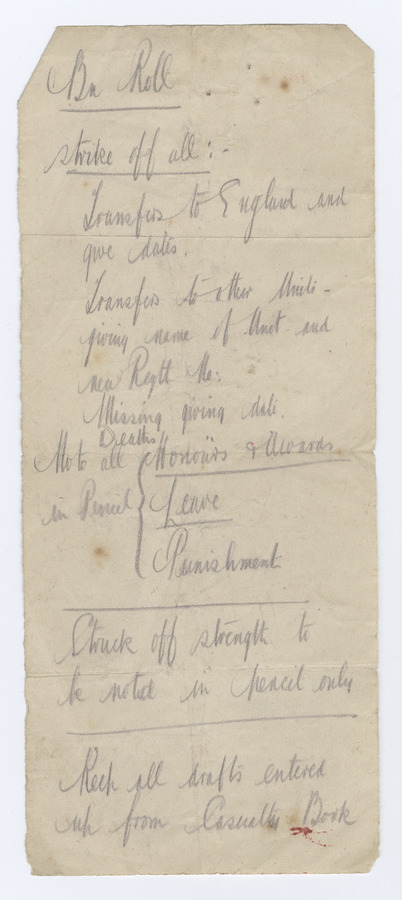 Bn Roll
strike off all :-
Transfers to England and
give dates.
Transfers to other Units -
giving name of Unit and
new Regtl No:
Missing giving date.
Deaths
Note all { Honours & Awards
in Pencil Leave
Punishment
Struck off strength to
be noted in pencil only
Keep all drafts entered
up from Casualty Book